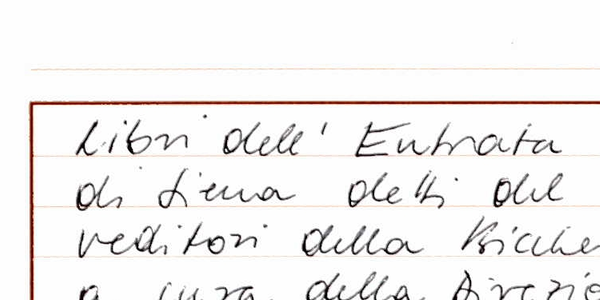 Libri dell' Entrata
di Siena detti del
veditori della Bicche
a cura della Direzio